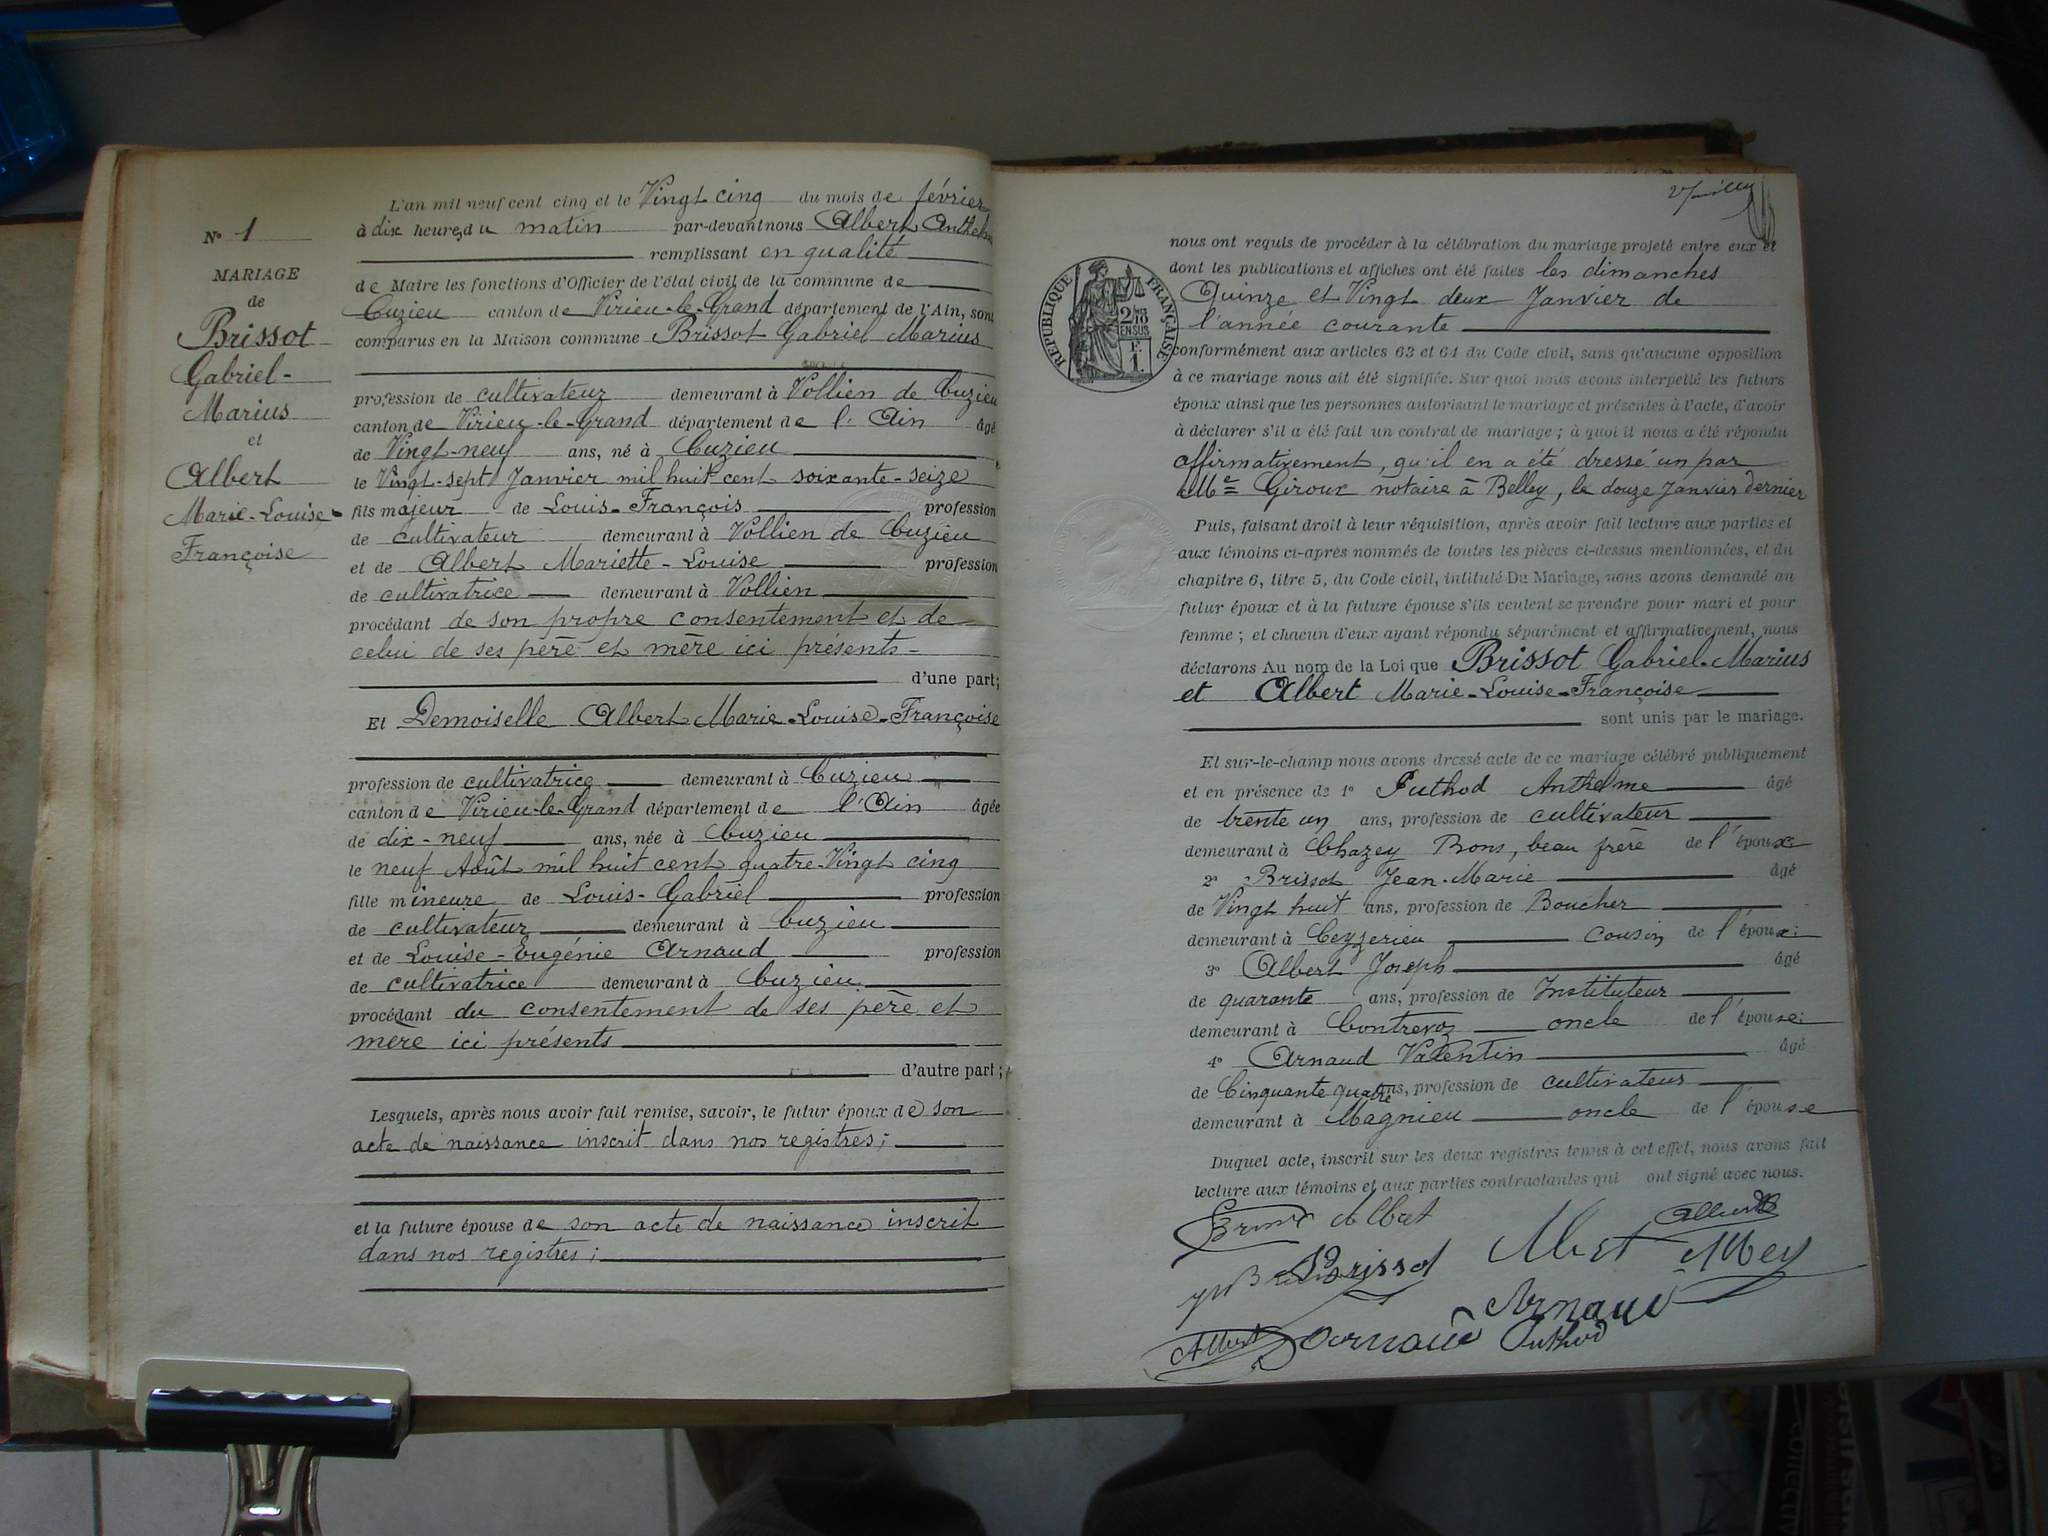 L'an mil neuf cent cinq et le Vingt cinq du mois de février
à dix heures du matin par-devant nous Albert Anthelme
remplissant en qualité
de Maire les fonctions d'Officier de l'état civil de la commune de
Cuzieu canton de Virieu-le-Grand département de l'Ain, sont
comparus en la Maison commune Brissot Gabriel Marius
profession de cultivateur demeurant à Vollien de Cuzieu
canton de Virieu-le-Grand département de l'Ain âgé
de Vingt-neuf ans, né à Cuzieu
le Vingt-sept Janvier mil huit cent soixante-seize
fils majeur de Louis-François profession
de cultivateur demeurant à Vollien de Cuzieu
et de Albert Mariette-Louise profession
de cultivatrice demeurant à Vollien
procédant de son propre consentement et de
celui de ses père et mère ici présents
d'une part;
Et Demoiselle Albert Marie-Louise-Françoise
profession de cultivatrice demeurant à Cuzieu
canton de Virieu-le-Grand département de l'Ain âgée
de dix-neuf ans, née à Cuzieu
le neuf Août mil huit cent quatre-Vingt cinq
fille mineure de Louis-Gabriel profession
de cultivateur demeurant à Cuzieu
et de Louise-Eugénie Arnaud profession
de cultivatrice demeurant à Cuzieu
procédant du consentement de ses père et
mère ici présents
d'autre part;
Lesquels, après nous avoir fait remise, savoir, le futur époux de son
acte de naissance inscrit dans nos registres;
et la future épouse de son acte de naissance inscrit
dans nos registres;
No 1
MARIAGE
de
Brissot
Gabriel-
Marius
et
Albert
Marie-Louise-
Françoise
nous ont requis de procéder à la célébration du mariage projeté entre eux et
dont les publications et affiches ont été faites les dimanches
Quinze et Vingt deux Janvier de
l'année courante
conformément aux articles 63 et 64 du Code civil, sans qu'aucune opposition
à ce mariage nous ait été signifiée. Sur quoi nous avons interpellé les futurs
époux ainsi que les personnes autorisant le mariage et présentes à l'acte, d'avoir
à déclarer s'il a été fait un contrat de mariage; à quoi il nous a été répondu
affirmativement, qu'il en a été dressé un par
Me Giroux notaire à Belley, le douze Janvier dernier
Puis, faisant droit à leur réquisition, après avoir fait lecture aux parties et
aux témoins ci-après nommés de toutes les pièces ci-dessus mentionnées, et du
chapitre 6, titre 5, du Code civil, intitulé Du Mariage, nous avons demandé au
futur époux et à la future épouse s'ils veulent se prendre pour mari et pour
femme; et chacun d'eux ayant répondu séparément et affirmativement, nous
déclarons Au nom de la Loi que Brissot Gabriel-Marius
et Albert Marie-Louise-Françoise
sont unis par le mariage.
Et sur-le-champ nous avons dressé acte de ce mariage célébré publiquement
et en présence de 1o Puthod Anthelme âgé
de trente un ans, profession de cultivateur
demeurant à Chazey Bons, beau frère de l'époux
2o Brissot Jean-Marie âgé
de Vingt huit ans, profession de Boucher
demeurant à Ceyzerieu cousin de l'époux;
3o Albert Joseph âgé
de quarante ans, profession de Instituteur
demeurant à Contrevoz oncle de l'épouse;
4o Arnaud Valentin âgé
de Cinquante quatre ans, profession de cultivateur
demeurant à Magnieu oncle de l'épouse
Duquel acte, inscrit sur les deux registres tenus à cet effet, nous avons fait
lecture aux témoins et aux parties contractantes qui ont signé avec nous.
Albert
Brissot
Arnaud
Albert
Puthod
RÉPUBLIQUE FRANÇAISE
2/10
EN SUS
F.
1.